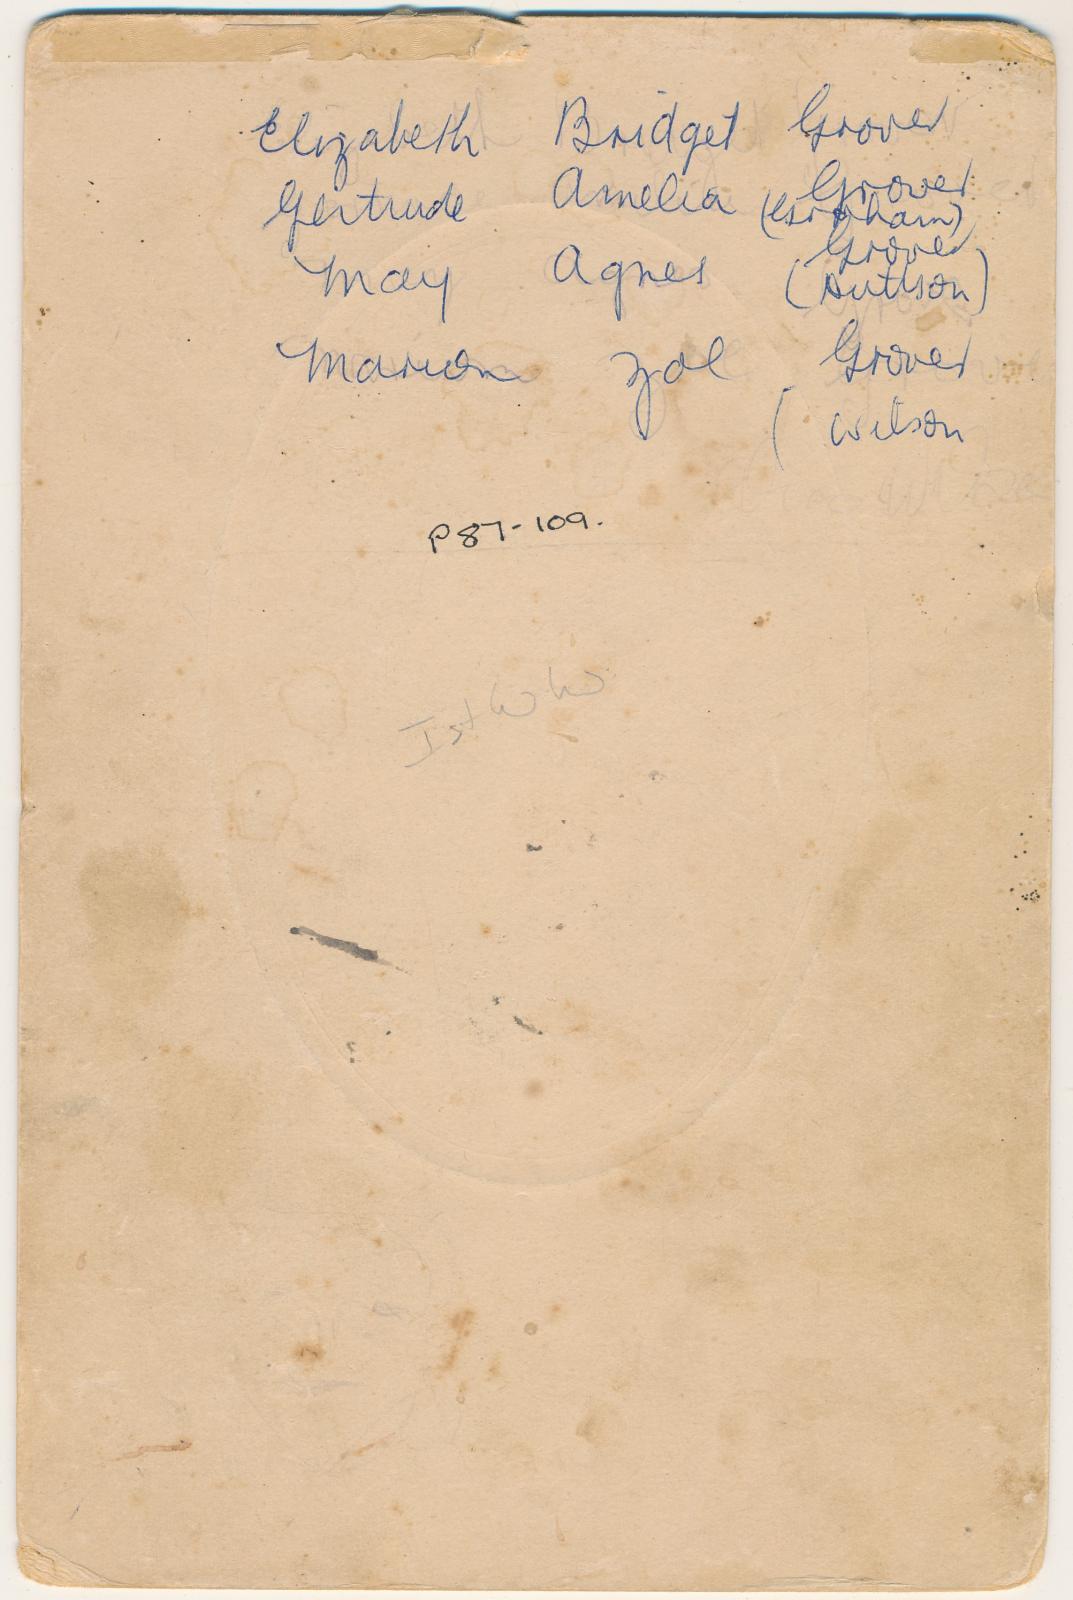 Elizabeth Bridget Grover
Gertrude Amelia Grover
May Agnes Grover
Marion Zoe Grover
( Wilson
P87-109.
Ist WW